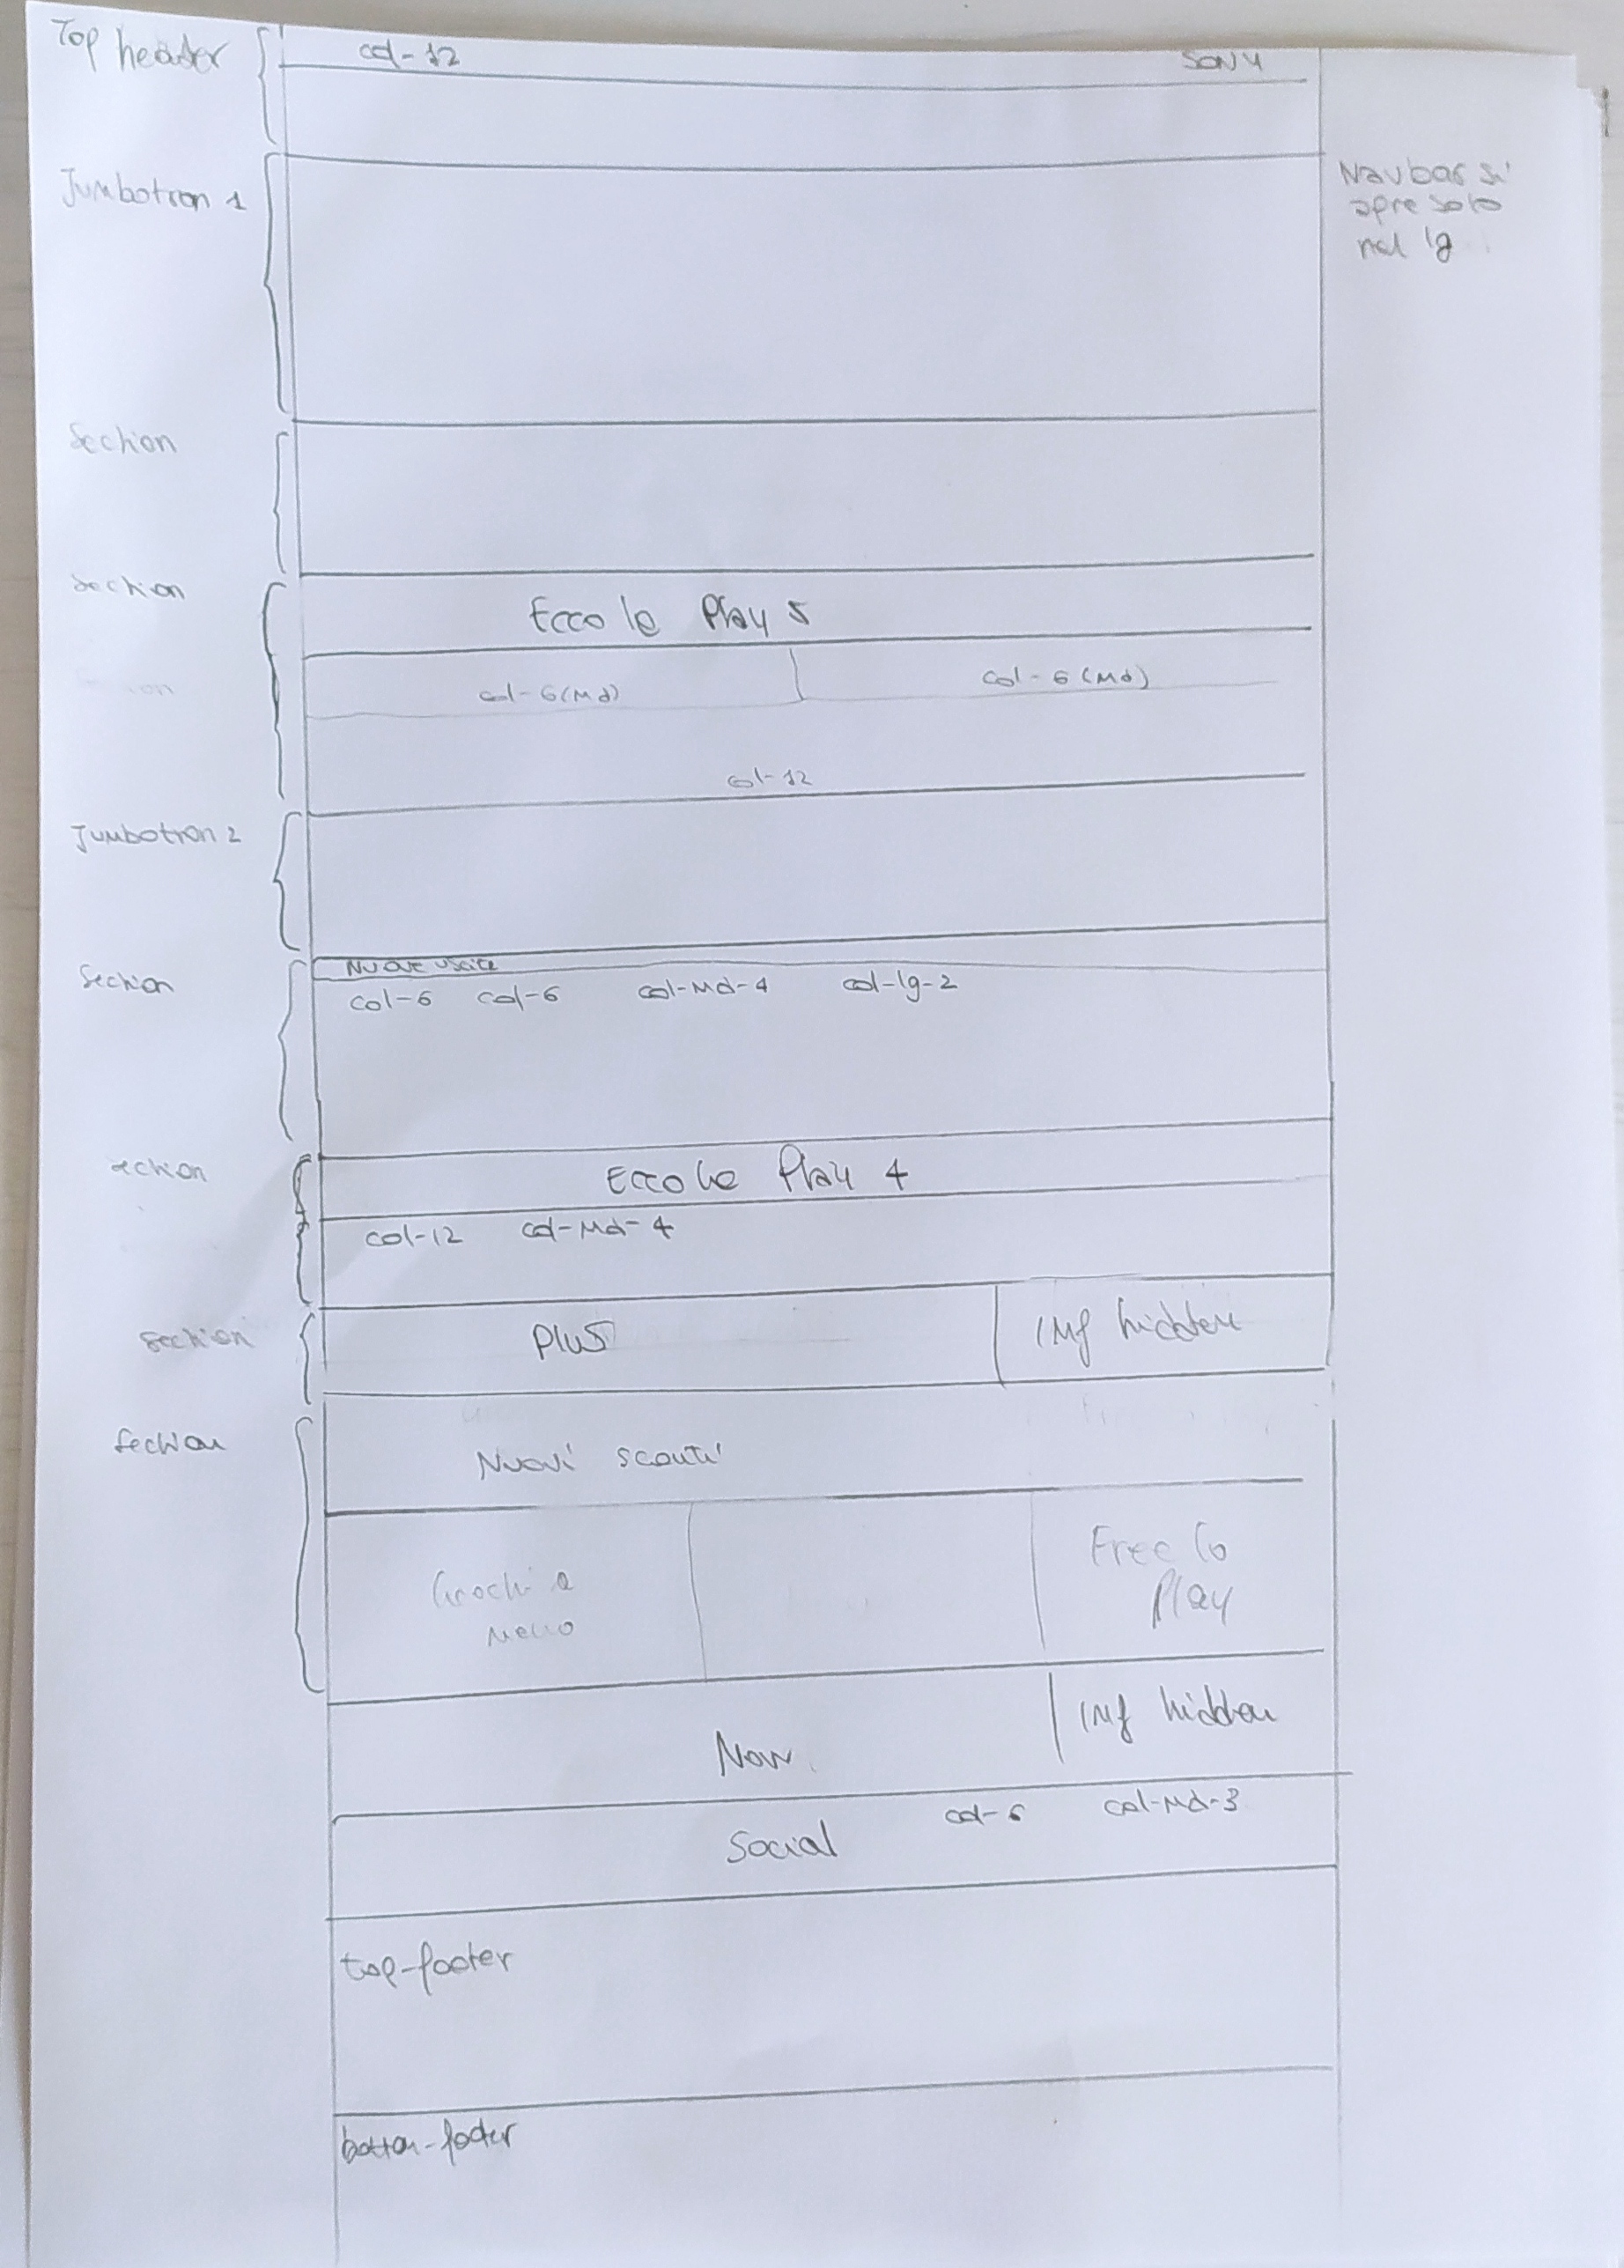 Top header
col-12
SONY
Jumbotron 1
Navbar si
apre solo
nel lg
Section
Section
Ecco le Play 5
col-6(Md)
col-6(Md)
col-12
Jumbotron 2
Section
Nuove uscite
col-6 col-6 col-Md-4 col-lg-2
ection
Ecco le Play 4
col-12 col-Md-4
Section
Plus
IMG hidden
Section
Nuovi sconti
Giochi a
meno
Free to
Play
Now
IMG hidden
Social
col-6
col-Md-3
top-footer